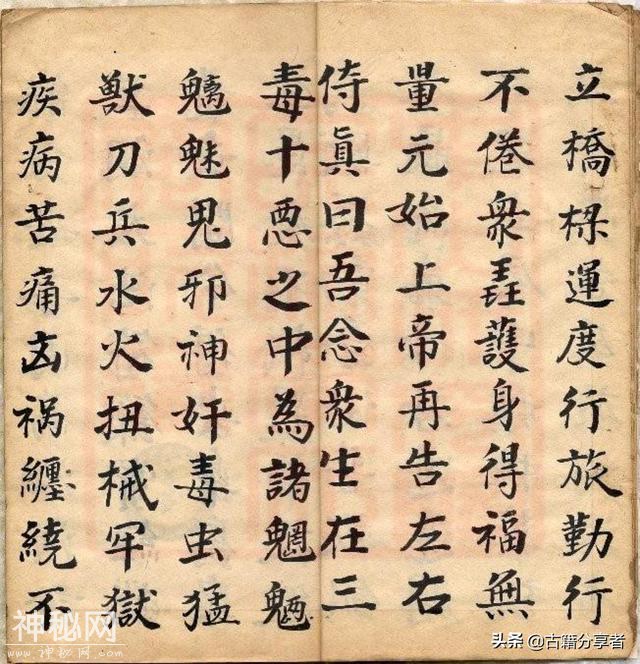 立橋樑運度行旅勤行
不倦衆護身得福無
量元始上帝再告左右
侍眞曰吾念衆生在三
毒十悪之中為諸魍魎
魑魅鬼邪神奸毒虫猛
獸刀兵水火扭械牢獄
疾病苦痛凶祸纏繞不
神秘网
www.神秘网.com
头条 @古籍分享者